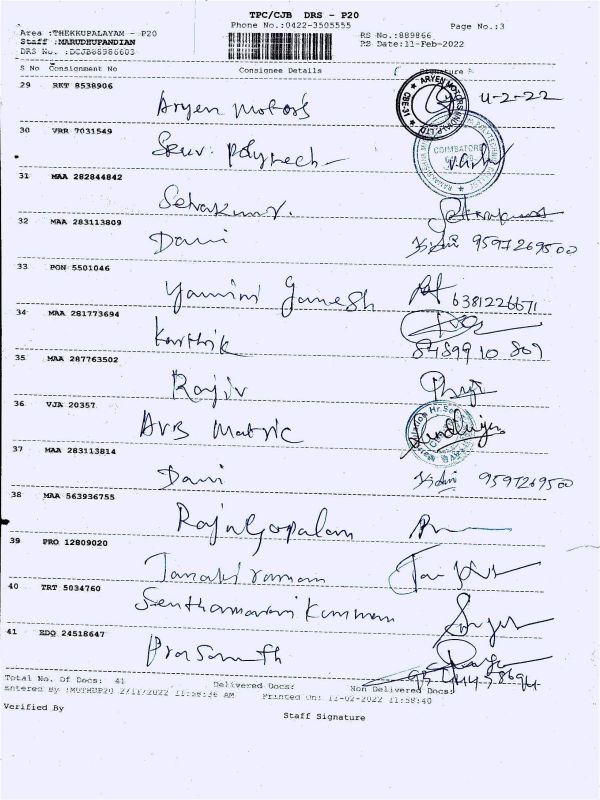 TPC/CJB DRS - P20
Phone No.:0422-3505555
Page No.:3
Area :THEKKUPALAYAM - P20
Staff :MARUDHUPANDIAN
DRS No. :DCJB88986603
RS No.:889866
RS Date:11-Feb-2022
S No Consignment No Consignee Details Signature
29 RKT 8538906
Aryen Motors 11-2-22
30 VRR 7031549
COIMBATORE
31 MAA 282844842
Selvakumar.
32 MAA 283113809
Davi 9597269500
33 PON 5501046
Yamini Ganesh 6381226671
34 MAA 281773694
Karthik 8489910809
35 MAA 287763502
Rajiv
36 VJA 20357
AVB Matric
37 MAA 283113814
Davi 9597269500
38 MAA 563936755
Rajagopalan
39 PRO 12809020
Janakiraman
40 TRT 5034760
41 EDQ 24518647
Prasanth
Total No. Of Docs: 41 Delivered Docs: Non Delivered Docs:
Entered By :MUTHUP20 2/11/2022 11:58:36 AM Printed On: 11-02-2022 11:58:40
Verified By
Staff Signature